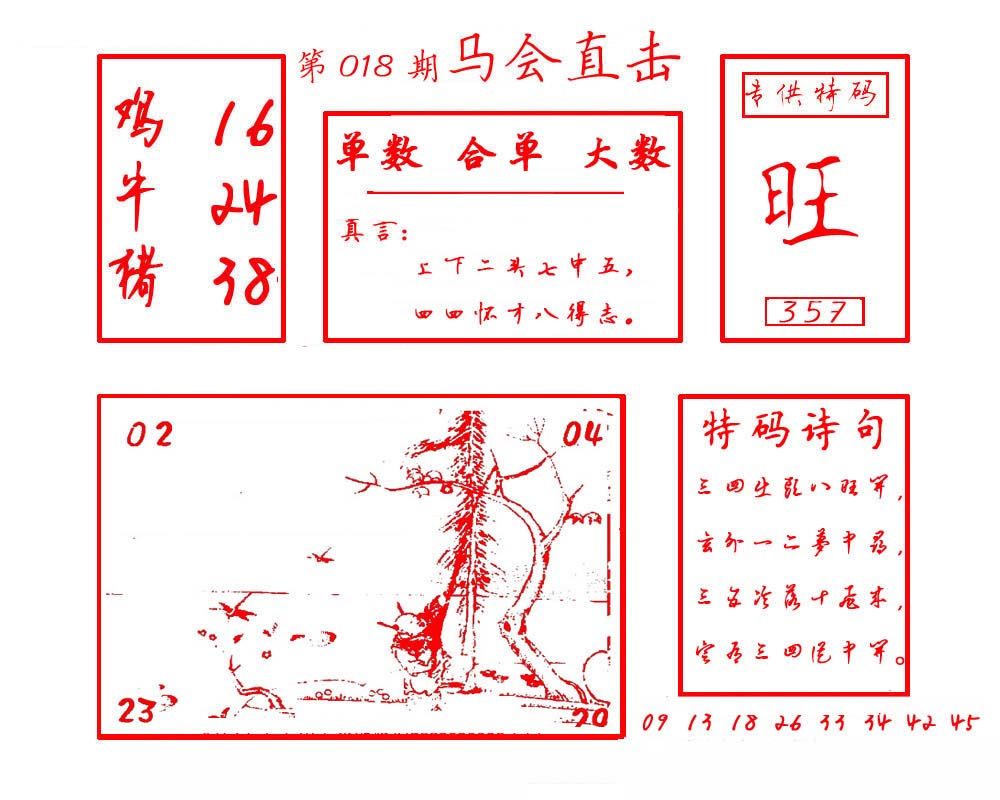 第 018 期 马会直击
鸡 16
牛 24
猪 38
单数 合单 大数
真言：
上下二头七中五，
四四怀才八得志。
专供特码
旺
357
02
04
23
20
特码诗句
三四生肖八旺开，
玄外一二梦中寻，
三五冷落十卷来，
三四尾中开。
09 13 18 26 33 34 42 45